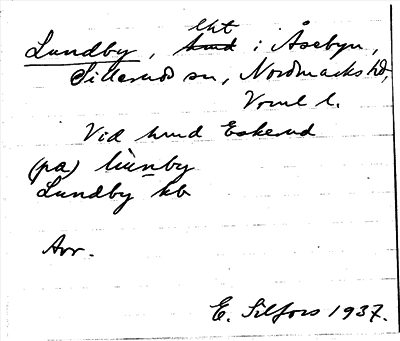 lht
Lundby, hmd i Åsebyn,
Sillerud sn, Nordmarks hd,
Värml l.
Vid hmd Eskerud
(pa) lùnby
Lundby kb
Avr.
E. Silfors 1937.